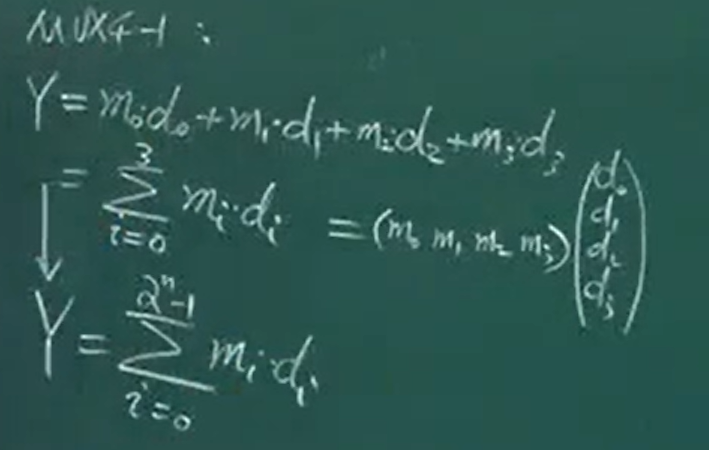 MUX4-1 :
Y = m₀·d₀ + m₁·d₁ + m₂·d₂ + m₃·d₃
= \sum_{i=0}^{3} mᵢ·dᵢ = (m₀ m₁ m₂ m₃) \begin{pmatrix} d₀ \\ d₁ \\ d₂ \\ d₃ \end{pmatrix}
↓
Y = \sum_{i=0}^{2^n-1} mᵢ·dᵢ